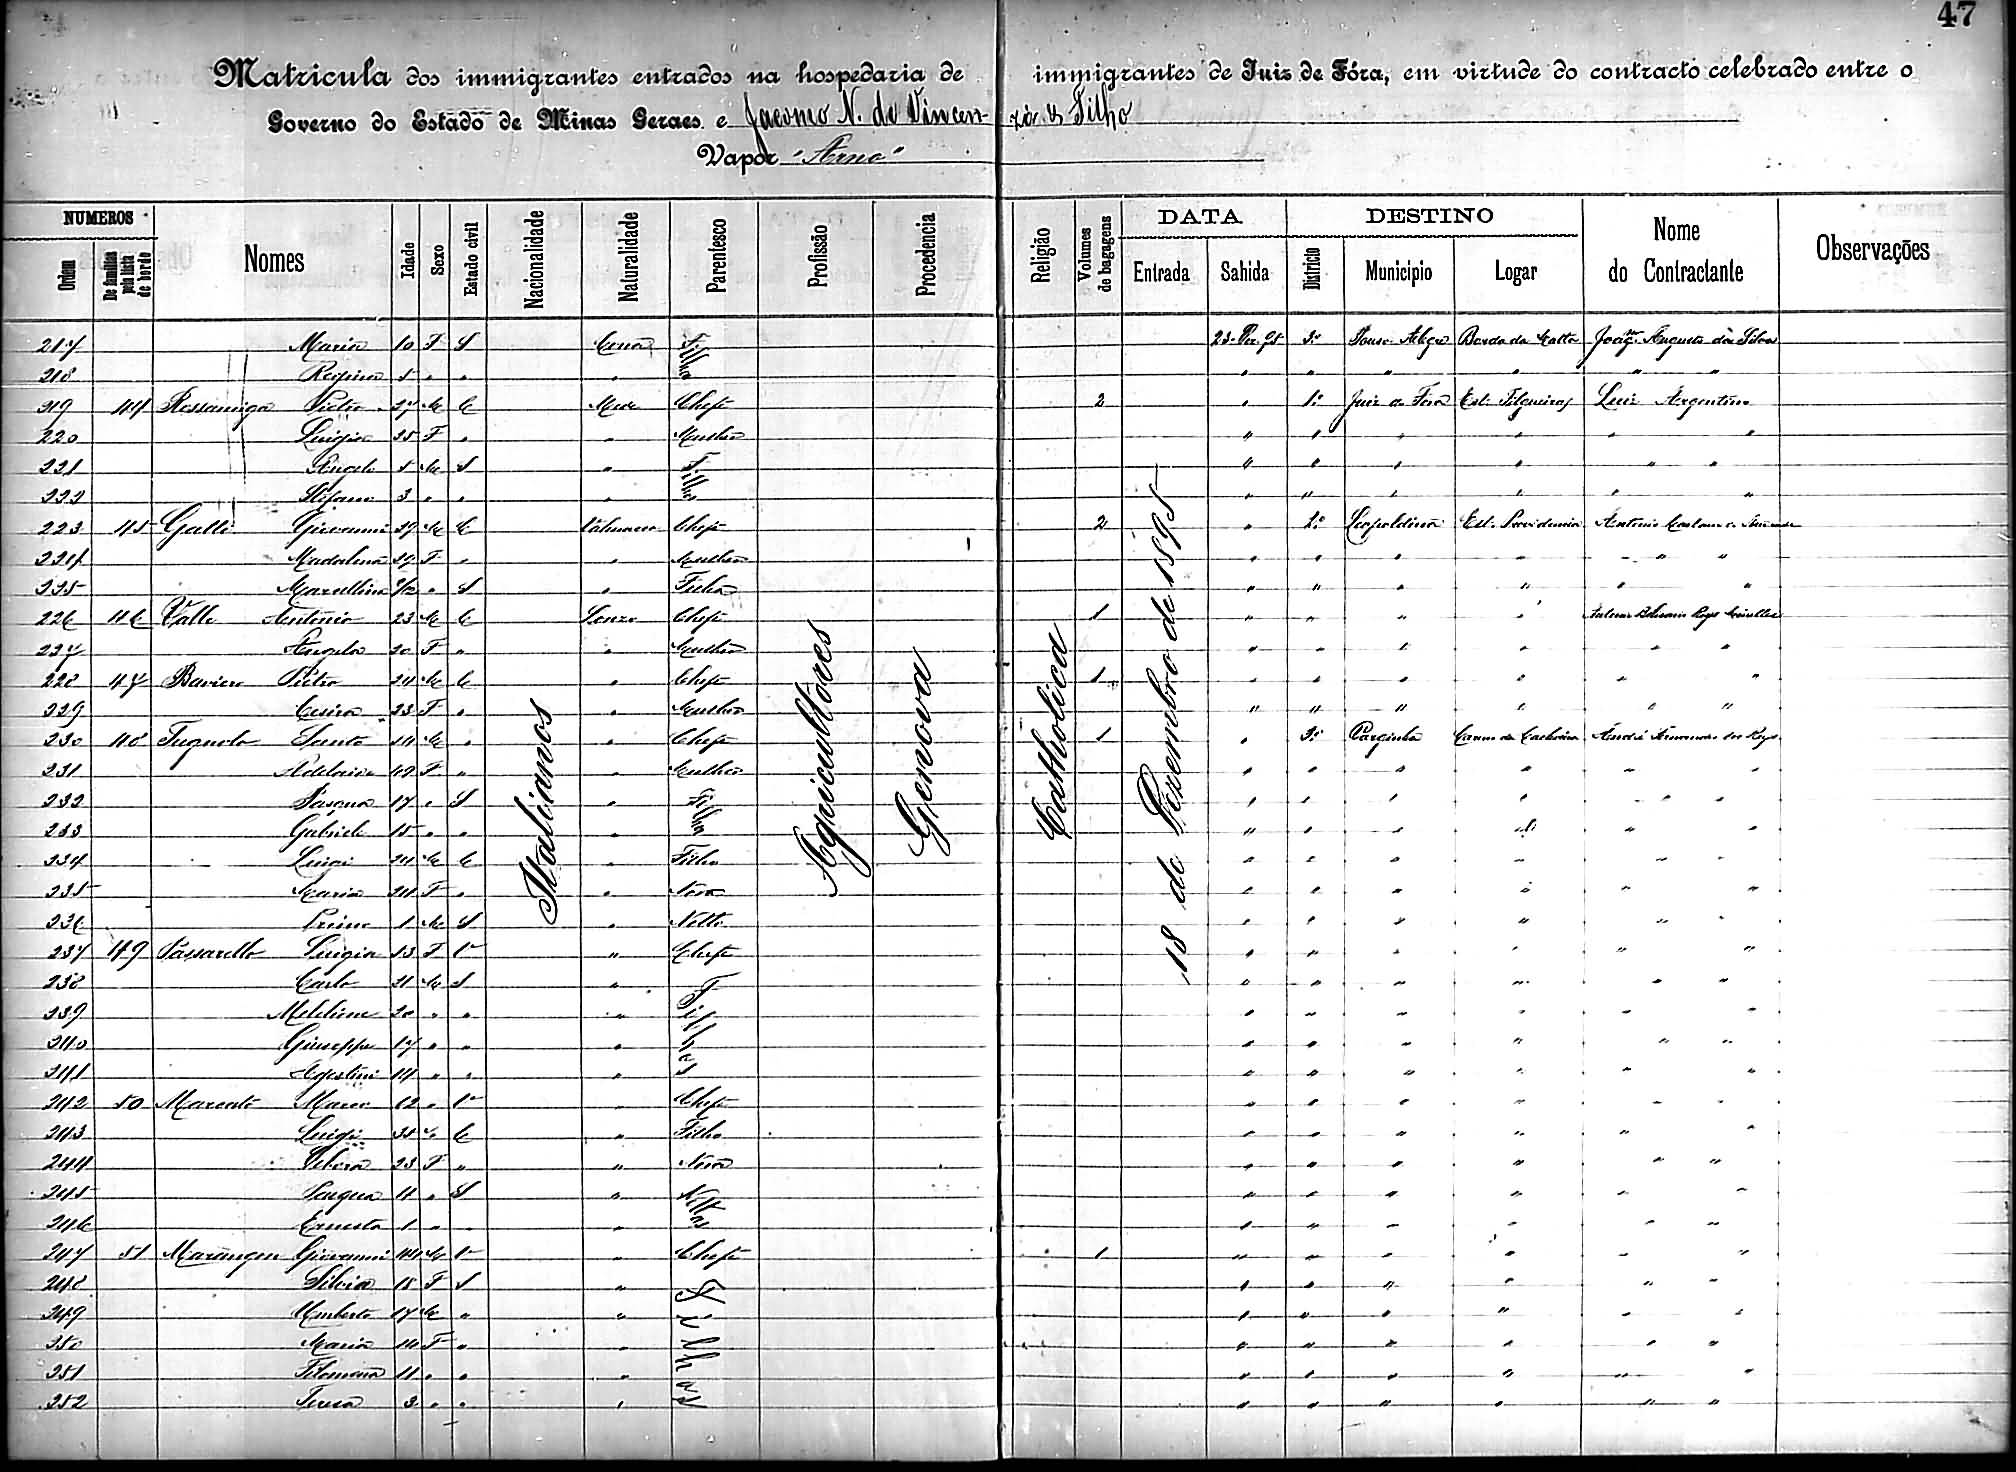 47
Matricula dos immigrantes entrados na hospedaria de immigrantes de Juiz de Fóra, em virtude do contracto celebrado entre o
Governo do Estado de Minas Geraes e Jacomo N. de Vincenzi & Filho
Vapor "Arno"
NUMEROS Nomes Idade Sexo Estado civil Nacionalidade Naturalidade Parentesco Profissão Procedencia Religião Volumes de bagagens DATA DESTINO Nome do Contractante Observações
Ordem De familias pela lista de bordo Entrada Sahida Districto Municipio Logar
Italianos Agricultores Genova Catholica 18 de Dezembro de 1895
217 Maria 10 F S Filha 3º Pouso Alegre Borda da Matta Augusto da Silva
218 Regina 5 " " " " " " " " "
219 44 Pietro 27 M C Mede Chefe 2 " 1º Juiz de Fora Est. Filgueiras Luiz Argentino
220 Luigia 25 F " " Mulher " " " " " "
221 Angelo 5 M S " Filhos " " " " " "
222 Stefano 3 " " " " " " " " "
223 45 Galli Giovanni 29 M C Chefe 2 " 2º Leopoldina Est. Providencia Antonio
224 Madalena 29 F " " Mulher " " " " " "
225 Marcellina " S " Filha " " " " " "
226 46 Valle Antonio 23 M C Chefe 1 " " " "
227 Angela 20 F " " Mulher " " " " " "
228 47 Pietro 24 M C " Chefe 1 " " " " " "
229 Cesira 23 F " " Mulher " " " " " "
230 48 Santo M " " Chefe 1 " 3º Varginha Carmo da Cachoeira André Fernandes dos Reys
231 Adelaide 49 F " " Mulher " " " " " "
232 Pasqua 17 " S " Filha " " " " " "
233 Gabriele 15 " " " " " " " " "
234 Luigi 24 M C " Filho " " " " " "
235 Maria 24 F " " Nora " " " " " "
236 Primo 1 M S " Netto " " " " " "
237 49 Passarello Luigia 53 F V " Chefe " " " " " "
238 Carlo 21 M S " Filhos " " " " " "
239 20 " " " " " " " " "
240 Giuseppe 17 " " " " " " " " "
241 14 " " " " " " " " "
242 50 Marcato Marco 62 " V " Chefe " " " " " "
243 Luigi 35 M C " Filho " " " " " "
244 23 F " " Nora " " " " " "
245 " S " Nettas " " " " " "
246 Ernesta 1 " " " " " " " " "
247 51 Marangon Giovanni 44 M V " Chefe 1 " " " " " "
248 Silvia 18 F S " Filhos " " " " " "
249 Umberto 17 M " " " " " " " "
250 Maria 14 F " " " " " " " "
251 Filomena 11 " " " " " " " " "
252 Teresa 3 " " " " " " " " "